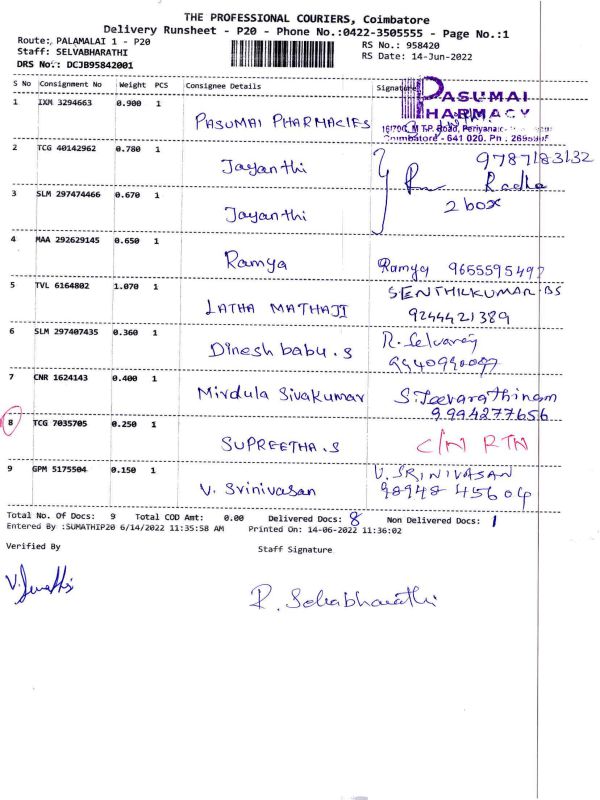 THE PROFESSIONAL COURIERS, Coimbatore
Delivery Runsheet - P20 - Phone No.:0422-3505555 - Page No.:1
Route: PALAMALAI 1 - P20
RS No.: 958420
Staff: SELVABHARATHI
RS Date: 14-Jun-2022
DRS No.: DCJB95842001
S No Consignment No Weight PCS Consignee Details Signature
1 IXM 3294663 0.900 1 PASUMAI PHARMACIES
PASUMAI
PHARMACY
Coimbatore - 641 020.
2 TCG 40142962 0.780 1 Jayanthi 9787183132
Radha
3 SLM 297474466 0.670 1 Jayanthi 2 box
4 MAA 292629145 0.650 1 Ramya Ramya 9655595497
5 TVL 6164802 1.070 1 LATHA MATHAJI SENTHILKUMAR.BS
9244421389
6 SLM 297407435 0.360 1 Dinesh babu.s R.Selvaraj
7 CNR 1624143 0.400 1 Mirdula Sivakumar S.Jeevarathinam
9994277656
8 TCG 7035705 0.250 1 SUPREETHA.S C/N RTN
9 GPM 5175504 0.150 1 V. Srinivasan V.SRINIVASAN
98948 45604
Total No. Of Docs: 9 Total COD Amt: 0.00 Delivered Docs: 8 Non Delivered Docs: 1
Entered By :SUMATHIP20 6/14/2022 11:35:58 AM Printed On: 14-06-2022 11:36:02
Verified By Staff Signature
V.Sumathi
R. Selvabharathi